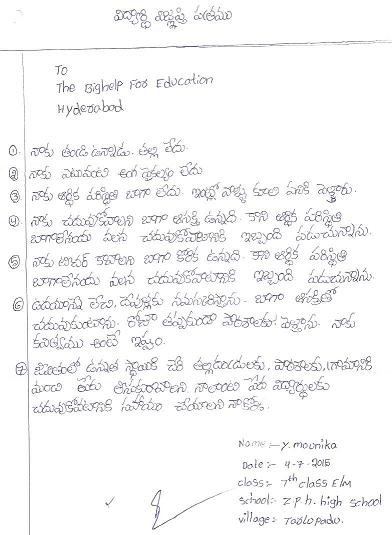 విద్యార్థి విజ్ఞప్తి పత్రము
To
The Bighelp For Education
Hyderabad
1. నాకు తండ్రి ఉన్నాడు. తల్లి లేదు.
2. నాకు ఎటువంటి అంగ వైకల్యం లేదు
3. నాకు ఆర్థిక పరిస్థితి బాగా లేదు. ఇంట్లో వాళ్ళు కూలి పనికి వెళ్తారు.
4. నాకు చదువుకోవాలని బాగా ఆసక్తి ఉన్నది. కాని ఆర్థిక పరిస్థితి
బాగాలేనందు వలన చదువుకోవటానికి ఇబ్బంది పడుచున్నాను.
5. నాకు టీచర్ కావాలని బాగా కోరిక ఉన్నది. కాని ఆర్థిక పరిస్థితి
బాగాలేనందు వలన చదువుకోవటానికి ఇబ్బంది పడుచున్నాను.
6. ఉదయాన్నే లేచి, దేవున్నికి నమస్కరిస్తాను. బాగా ఆసక్తితో
చదువుకుంటాను. రోజూ తప్పకుండా పాఠశాలకు వెళ్తాను. నాకు
కవిత్వము అంటే ఇష్టం.
7. జీవితంలో ఉన్నత స్థాయికి చేరి తల్లిదండ్రులకు, పాఠశాలకు, గ్రామానికి
మంచి పేరు తీసుకురావాలని, నాలాంటి పేద విద్యార్థులకు
చదువుకోవటానికి సహాయం చేయాలని నా కోరిక.
Name :- Y. mounika
Date :- 4-7-2015
class :- 7th class E/M
school :- Z.p.h. high school
village :- Tadlopadu.